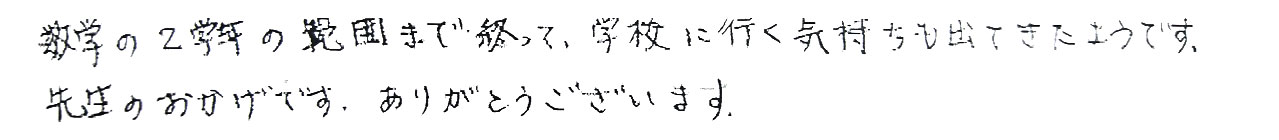 数学の2学年の範囲まで終って、学校に行く気持ちも出てきたようです。
先生のおかげです。ありがとうございます。